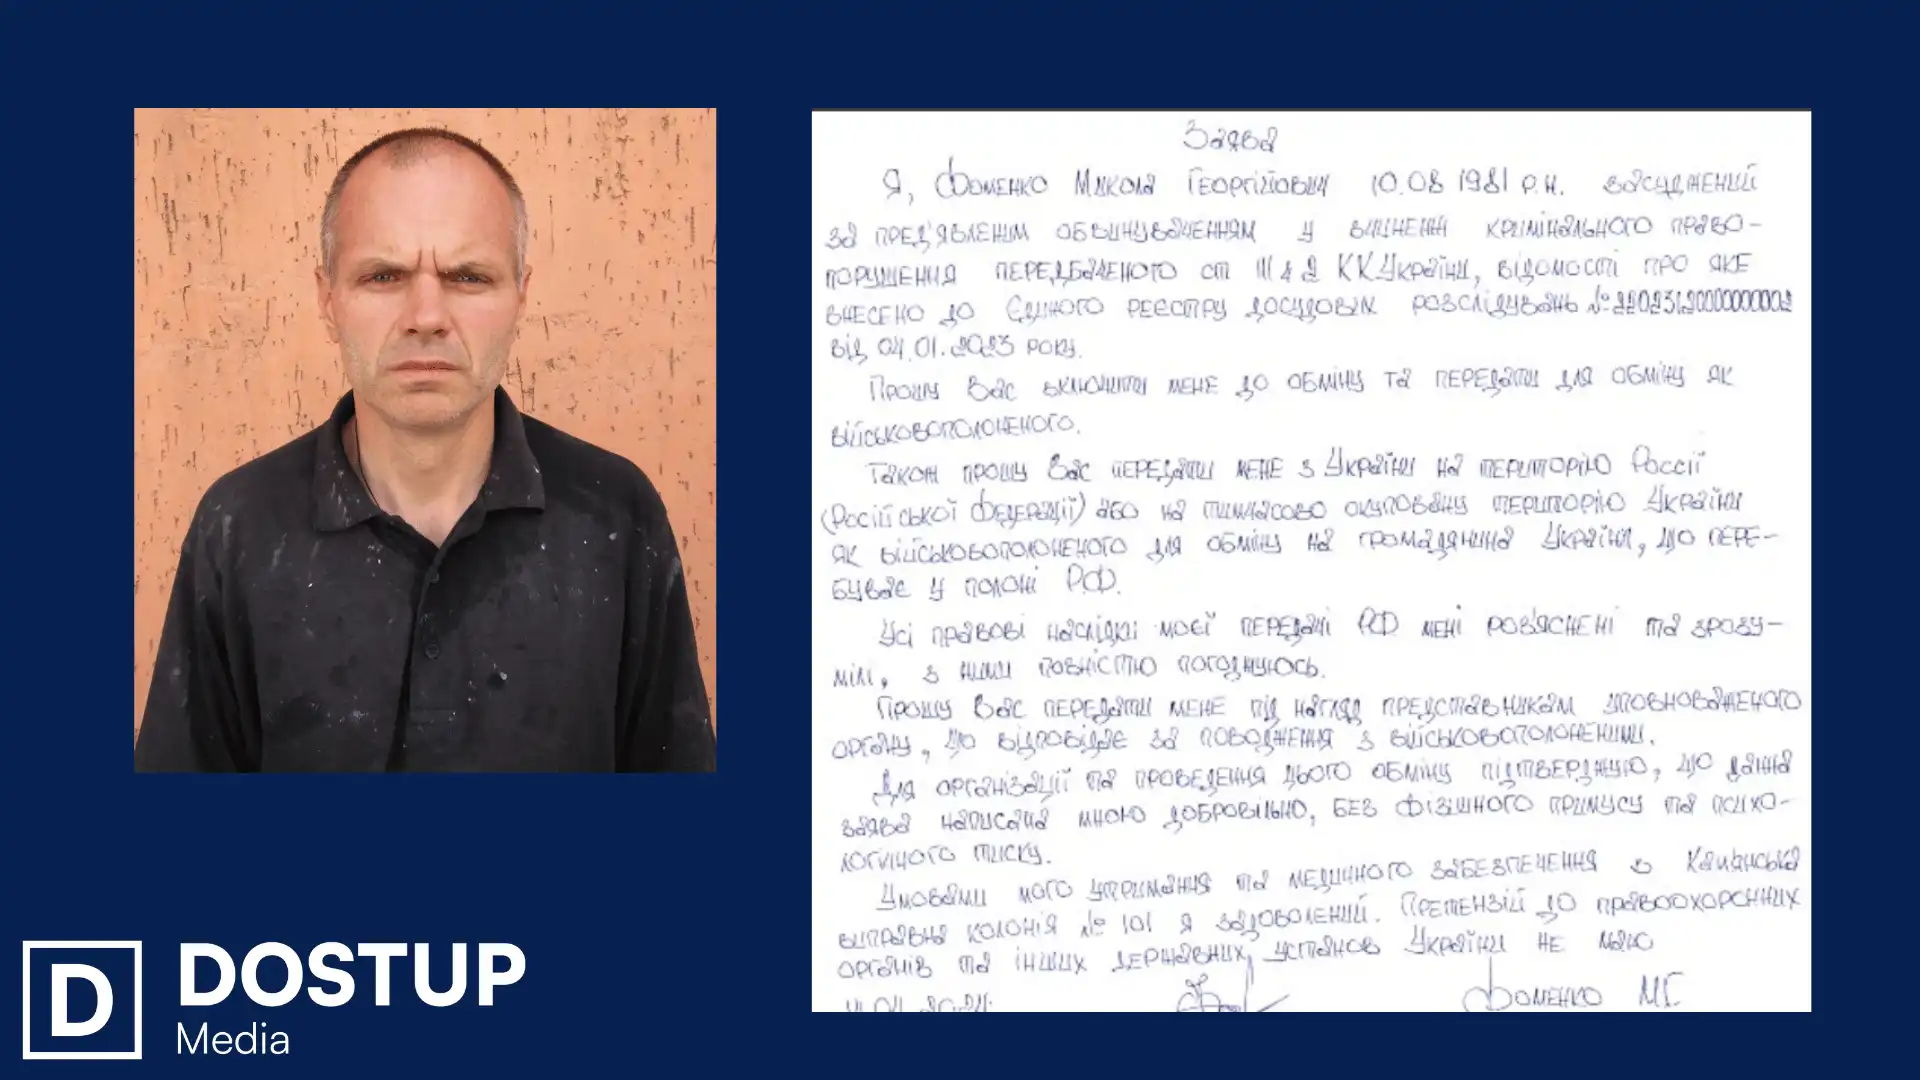 Заява
Я, Фоменко Микола Георгійович 10.08 1981 р.н. засуджений
за пред'явленим обвинуваченням у вчиненні кримінального право-
порушення передбаченого ст 111 ч 2 КК України, відомості про яке
внесено до Єдиного реєстру досудових розслідувань №
від 04.01.2023 року.
Прошу Вас включити мене до обміну та передати для обміну як
військовополоненого.
Також прошу Вас передати мене з України на територію Россії
(Російської Федерації) або на тимчасово окуповану територію України
як військовополоненого для обміну на громадянина України, що пере-
буває у полоні РФ.
Усі правові наслідки моєї передачі РФ мені роз'яснені та зрозу-
мілі, з ними повністю погоджуюсь.
Прошу Вас передати мене під нагляд представникам уповноваженого
органу, що відповідає за поводження з військовополоненими.
Для організації та проведення цього обміну підтверджую, що данна
заява написана мною добровільно, без фізичного примусу та психо-
логічного тиску.
Умовами мого утримання та медичного забезпечення в
виправна колонія № 101 я задоволений. Претензій до правоохоронних
органів та інших державних установ України не маю
Фоменко М.Г.
D DOSTUP
Media